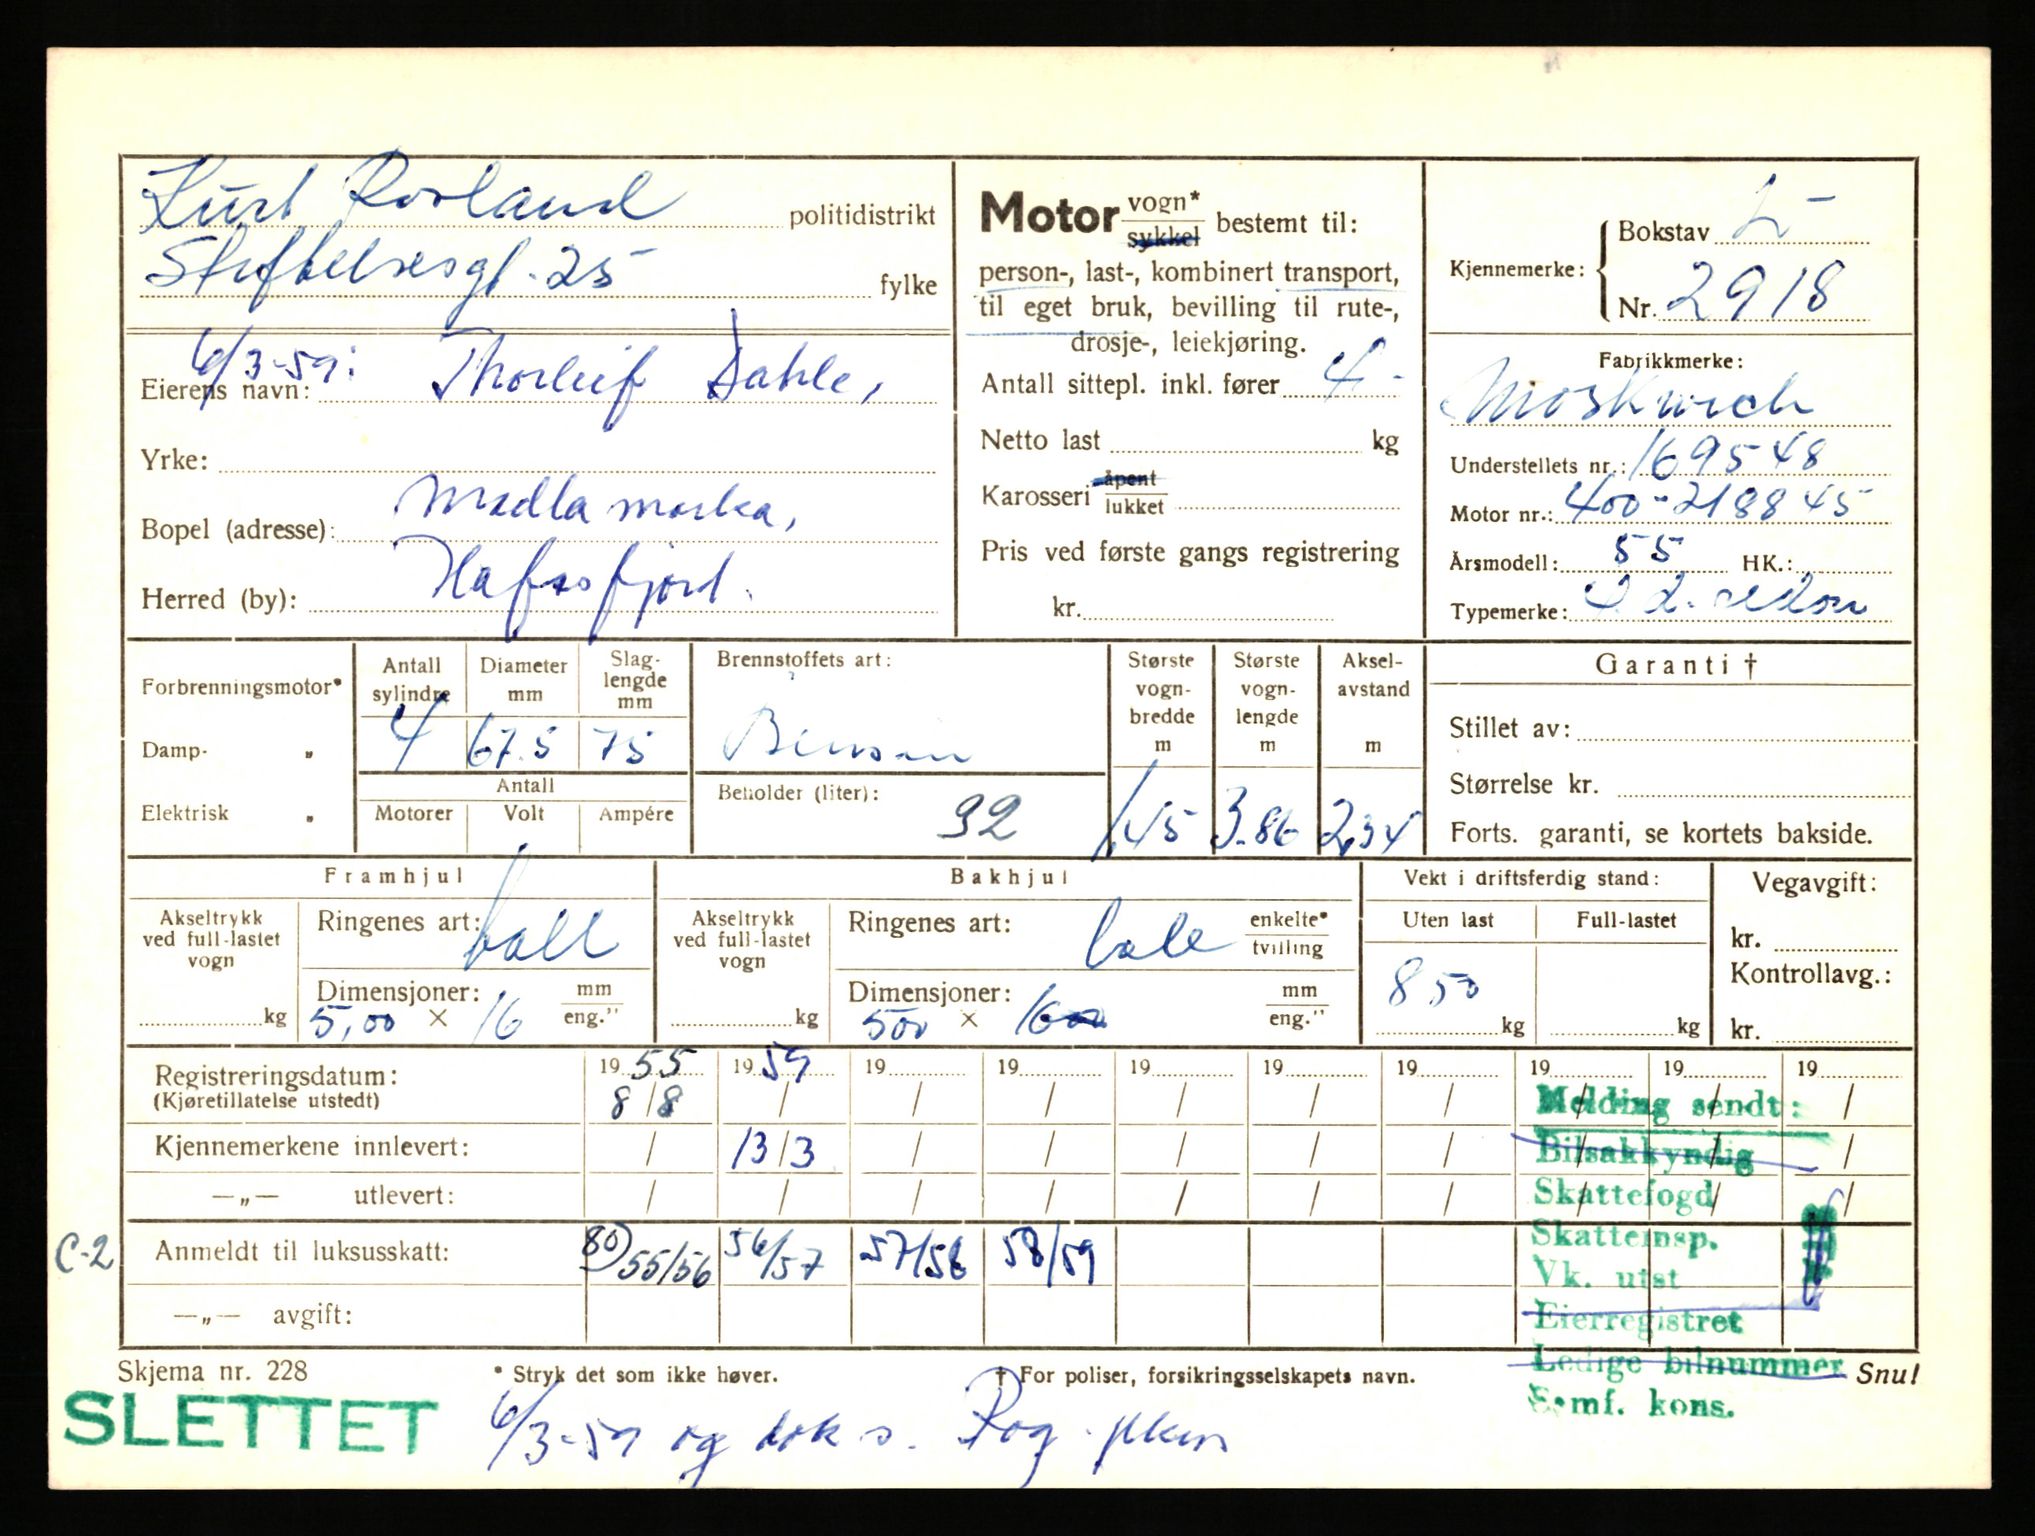 Kurt Rosland politidistrikt
Stiftelsesgt. 25 fylke
6/3-59:
Eierens navn: Thorleif Dahle,
Yrke:
Bopel (adresse): Madlamarka,
Herred (by): Hafrsfjord.
Motor vogn* sykkel bestemt til:
person-, last-, kombinert transport,
til eget bruk, bevilling til rute-,
drosje-, leiekjøring.
Antall sittepl. inkl. fører 4-
Netto last kg
Karosseri åpent lukket
Pris ved første gangs registrering
kr.
Kjennemerke: Bokstav L-
Nr. 2918
Fabrikkmerke:
Moskwich
Understellets nr.: 169548
Motor nr.: 400-218845
Årsmodell: 55 HK.:
Typemerke: d. sedan
Forbrenningsmotor*
Damp- „
Elektrisk „
Antall sylindre Diameter mm Slaglengde mm
4 67.5 75
Antall
Motorer Volt Ampére
Brennstoffets art:
Bensin
Beholder (liter): 32
Største vognbredde m 1,45
Største vognlengde m 3.86
Akselavstand m 2,34
Garanti †
Stillet av:
Størrelse kr.
Forts. garanti, se kortets bakside.
Framhjul
Akseltrykk ved full-lastet vogn kg
Ringenes art: ball
Dimensjoner: 5,00 × 16 mm eng."
Bakhjul
Akseltrykk ved full-lastet vogn kg
Ringenes art: enkelte* tvilling
Dimensjoner: 500 × 16 mm eng."
Vekt i driftsferdig stand:
Uten last Full-lastet
850 kg kg
Vegavgift:
kr.
Kontrollavg.:
kr.
Registreringsdatum: 19 55 19 59 19 19 19 19 19 19 19 19
(Kjøretillatelse utstedt) 8/8 / / / / / / / / /
Kjennemerkene innlevert: / 13/3 / / / / / / / /
—„— utlevert: / / / / / / / / / /
C-2 Anmeldt til luksusskatt: 80) 55/56 56/57 57/58 58/59
—„— avgift:
Melding sendt:
Bilsakkyndig
Skattefogd
Skatteinsp.
Vk. utst
Eierregistret
Ledige bilnummer
Somf. kons.
Skjema nr. 228 * Stryk det som ikke høver. † For poliser, forsikringsselskapets navn. Snu!
SLETTET
6/3-59 og dok s. Rog.